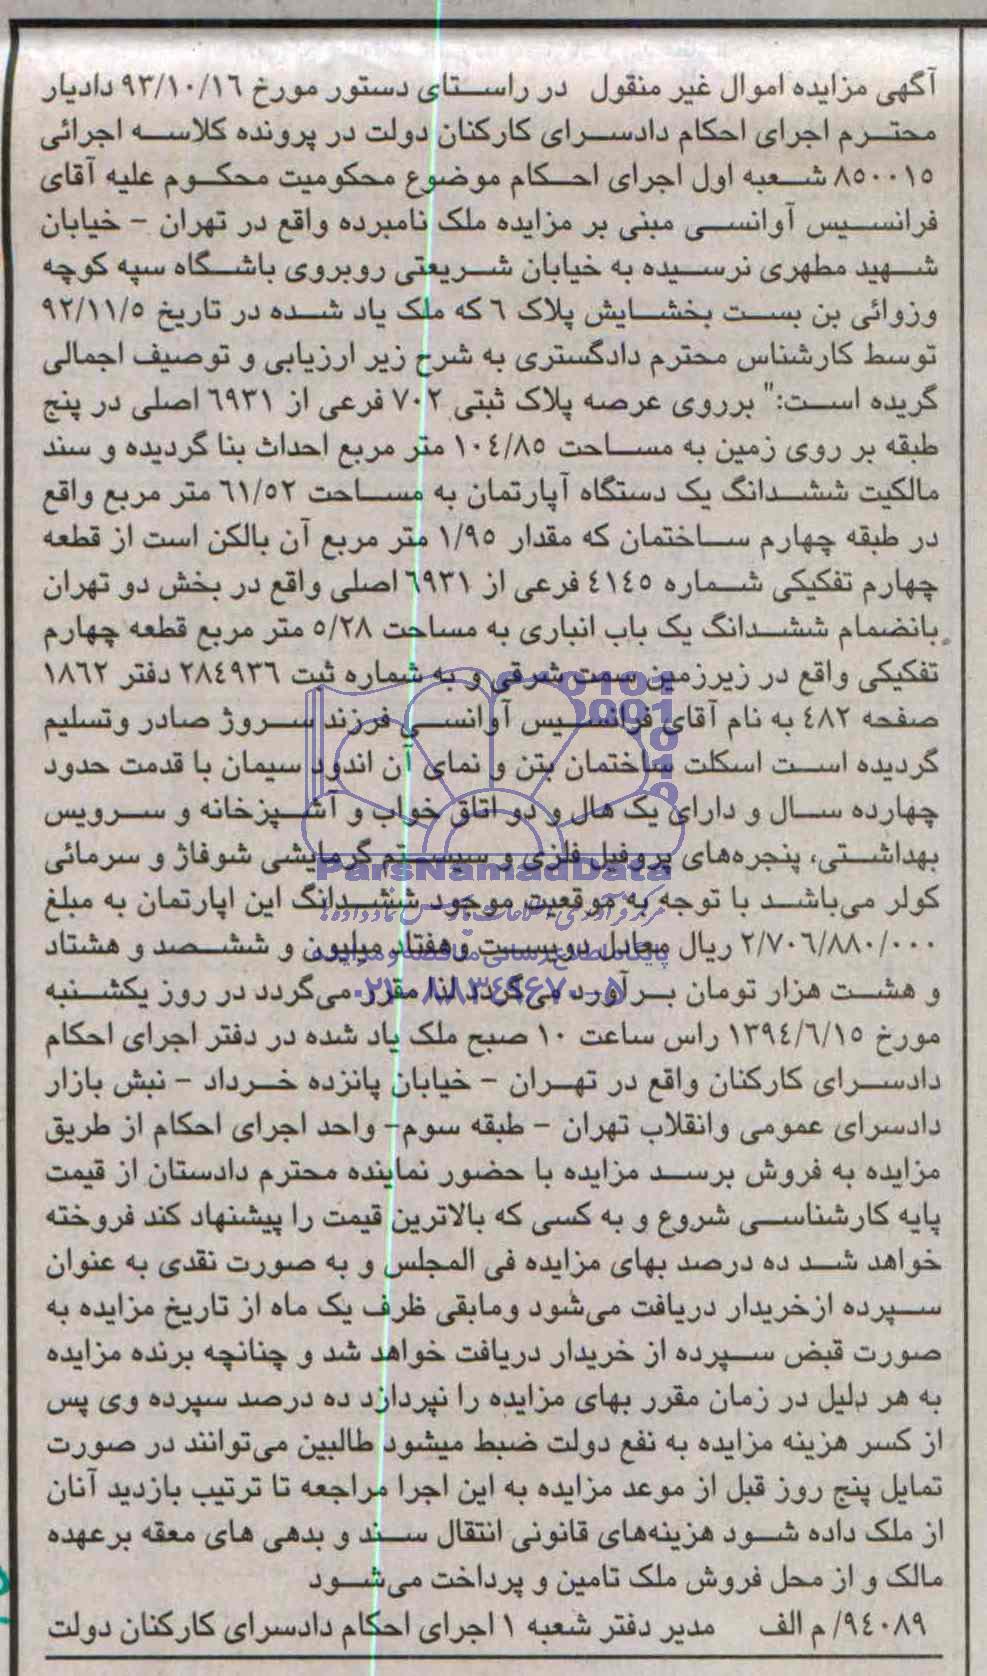 آگهی مزایده اموال غیر منقول در راستای دستور مورخ ۹۳/۱۰/۱۶ دادیار
محترم اجرای احکام دادسرای کارکنان دولت در پرونده کلاسه اجرائی
۸۵۰۰۱۵ شعبه اول اجرای احکام موضوع محکومیت محکوم علیه آقای
فرانسیس آوانسی مبنی بر مزایده ملک نامبرده واقع در تهران - خیابان
شهید مطهری نرسیده به خیابان شریعتی روبروی باشگاه سپه کوچه
وزوائی بن بست بخشایش پلاک ٦ که ملک یاد شده در تاریخ ۹۲/۱۱/۵
توسط کارشناس محترم دادگستری به شرح زیر ارزیابی و توصیف اجمالی
گریده است:" برروی عرصه پلاک ثبتی ۷۰۲ فرعی از ٦۹۳۱ اصلی در پنج
طبقه بر روی زمین به مساحت ۱۰٤/۸۵ متر مربع احداث بنا گردیده و سند
مالکیت ششدانگ یک دستگاه آپارتمان به مساحت ٦۱/۵۲ متر مربع واقع
در طبقه چهارم ساختمان که مقدار ۱/۹۵ متر مربع آن بالکن است از قطعه
چهارم تفکیکی شماره ٤۱٤۵ فرعی از ٦۹۳۱ اصلی واقع در بخش دو تهران
بانضمام ششدانگ یک باب انباری به مساحت ۵/۲۸ متر مربع قطعه چهارم
تفکیکی واقع در زیرزمین سمت شرقی و به شماره ثبت ۲۸٤۹۳٦ دفتر ۱۸٦۲
صفحه ٤۸۲ به نام آقای فرانسیس آوانسی فرزند سروژ صادر وتسلیم
گردیده است اسکلت ساختمان بتن و نمای آن اندود سیمان با قدمت حدود
چهارده سال و دارای یک هال و دو اتاق خواب و آشپزخانه و سرویس
بهداشتی، پنجره‌های پروفیل فلزی و سیستم گرمایشی شوفاژ و سرمائی
ParsNamadData
کولر می‌باشد با توجه به موقعیت موجود ششدانگ این اپارتمان به مبلغ
مرکز فرآوری اطلاعات پارس نماد داده ها
۲/۷۰٦/۸۸۰/۰۰۰ ریال معادل دویست وهفتاد میلیون و ششصد و هشتاد
پایگاه اطلاع رسانی مناقصه و مزایده
و هشت هزار تومان برآورد می‌گردد لذا مقرر می‌گردد در روز یکشنبه
۰۲۱-۸۸۳۴۹۶۷۰-۵
مورخ ۱۳۹٤/٦/۱۵ راس ساعت ۱۰ صبح ملک یاد شده در دفتر اجرای احکام
دادسرای کارکنان واقع در تهران - خیابان پانزده خرداد - نبش بازار
دادسرای عمومی وانقلاب تهران - طبقه سوم- واحد اجرای احکام از طریق
مزایده به فروش برسد مزایده با حضور نماینده محترم دادستان از قیمت
پایه کارشناسی شروع و به کسی که بالاترین قیمت را پیشنهاد کند فروخته
خواهد شد ده درصد بهای مزایده فی المجلس و به صورت نقدی به عنوان
سپرده ازخریدار دریافت می‌شود ومابقی ظرف یک ماه از تاریخ مزایده به
صورت قبض سپرده از خریدار دریافت خواهد شد و چنانچه برنده مزایده
به هر دلیل در زمان مقرر بهای مزایده را نپردازد ده درصد سپرده وی پس
از کسر هزینه مزایده به نفع دولت ضبط میشود طالبین می‌توانند در صورت
تمایل پنج روز قبل از موعد مزایده به این اجرا مراجعه تا ترتیب بازدید آنان
از ملک داده شود هزینه‌های قانونی انتقال سند و بدهی های معقه برعهده
مالک و از محل فروش ملک تامین و پرداخت می‌شود
۹٤۰۸۹/ م الف مدیر دفتر شعبه ۱ اجرای احکام دادسرای کارکنان دولت